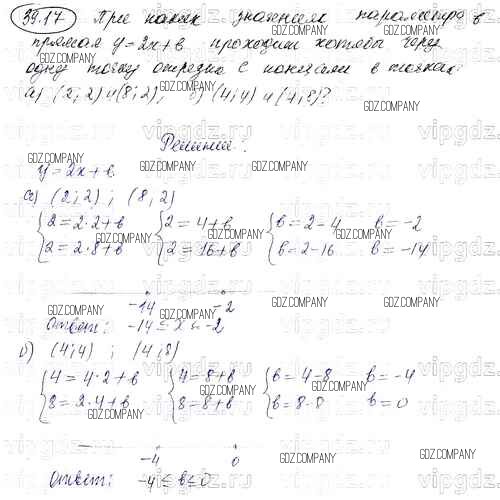 39.17 При каких значениях параметра в
прямая y = 2x + в проходит хотя бы через
одну точку отрезка с концами в точках:
а) (2; 2) и (8; 2); б) (4; 4) и (4; 8)?
Решение:
y = 2x + в
а) (2; 2) ; (8; 2)
{2 = 2·2 + в {2 = 4 + в {в = 2 - 4 в = -2
{2 = 2·8 + в {2 = 16 + в {в = 2 - 16 в = -14
-14 -2
Ответ: -14 ≤ x ≤ -2
б) (4; 4) ; (4; 8)
{4 = 4·2 + в {4 = 8 + в {в = 4 - 8 в = -4
{8 = 2·4 + в {8 = 8 + в {в = 8 - 8 в = 0
-4 0
Ответ: -4 ≤ в ≤ 0
GDZ.COMPANY
vipgdz.ru